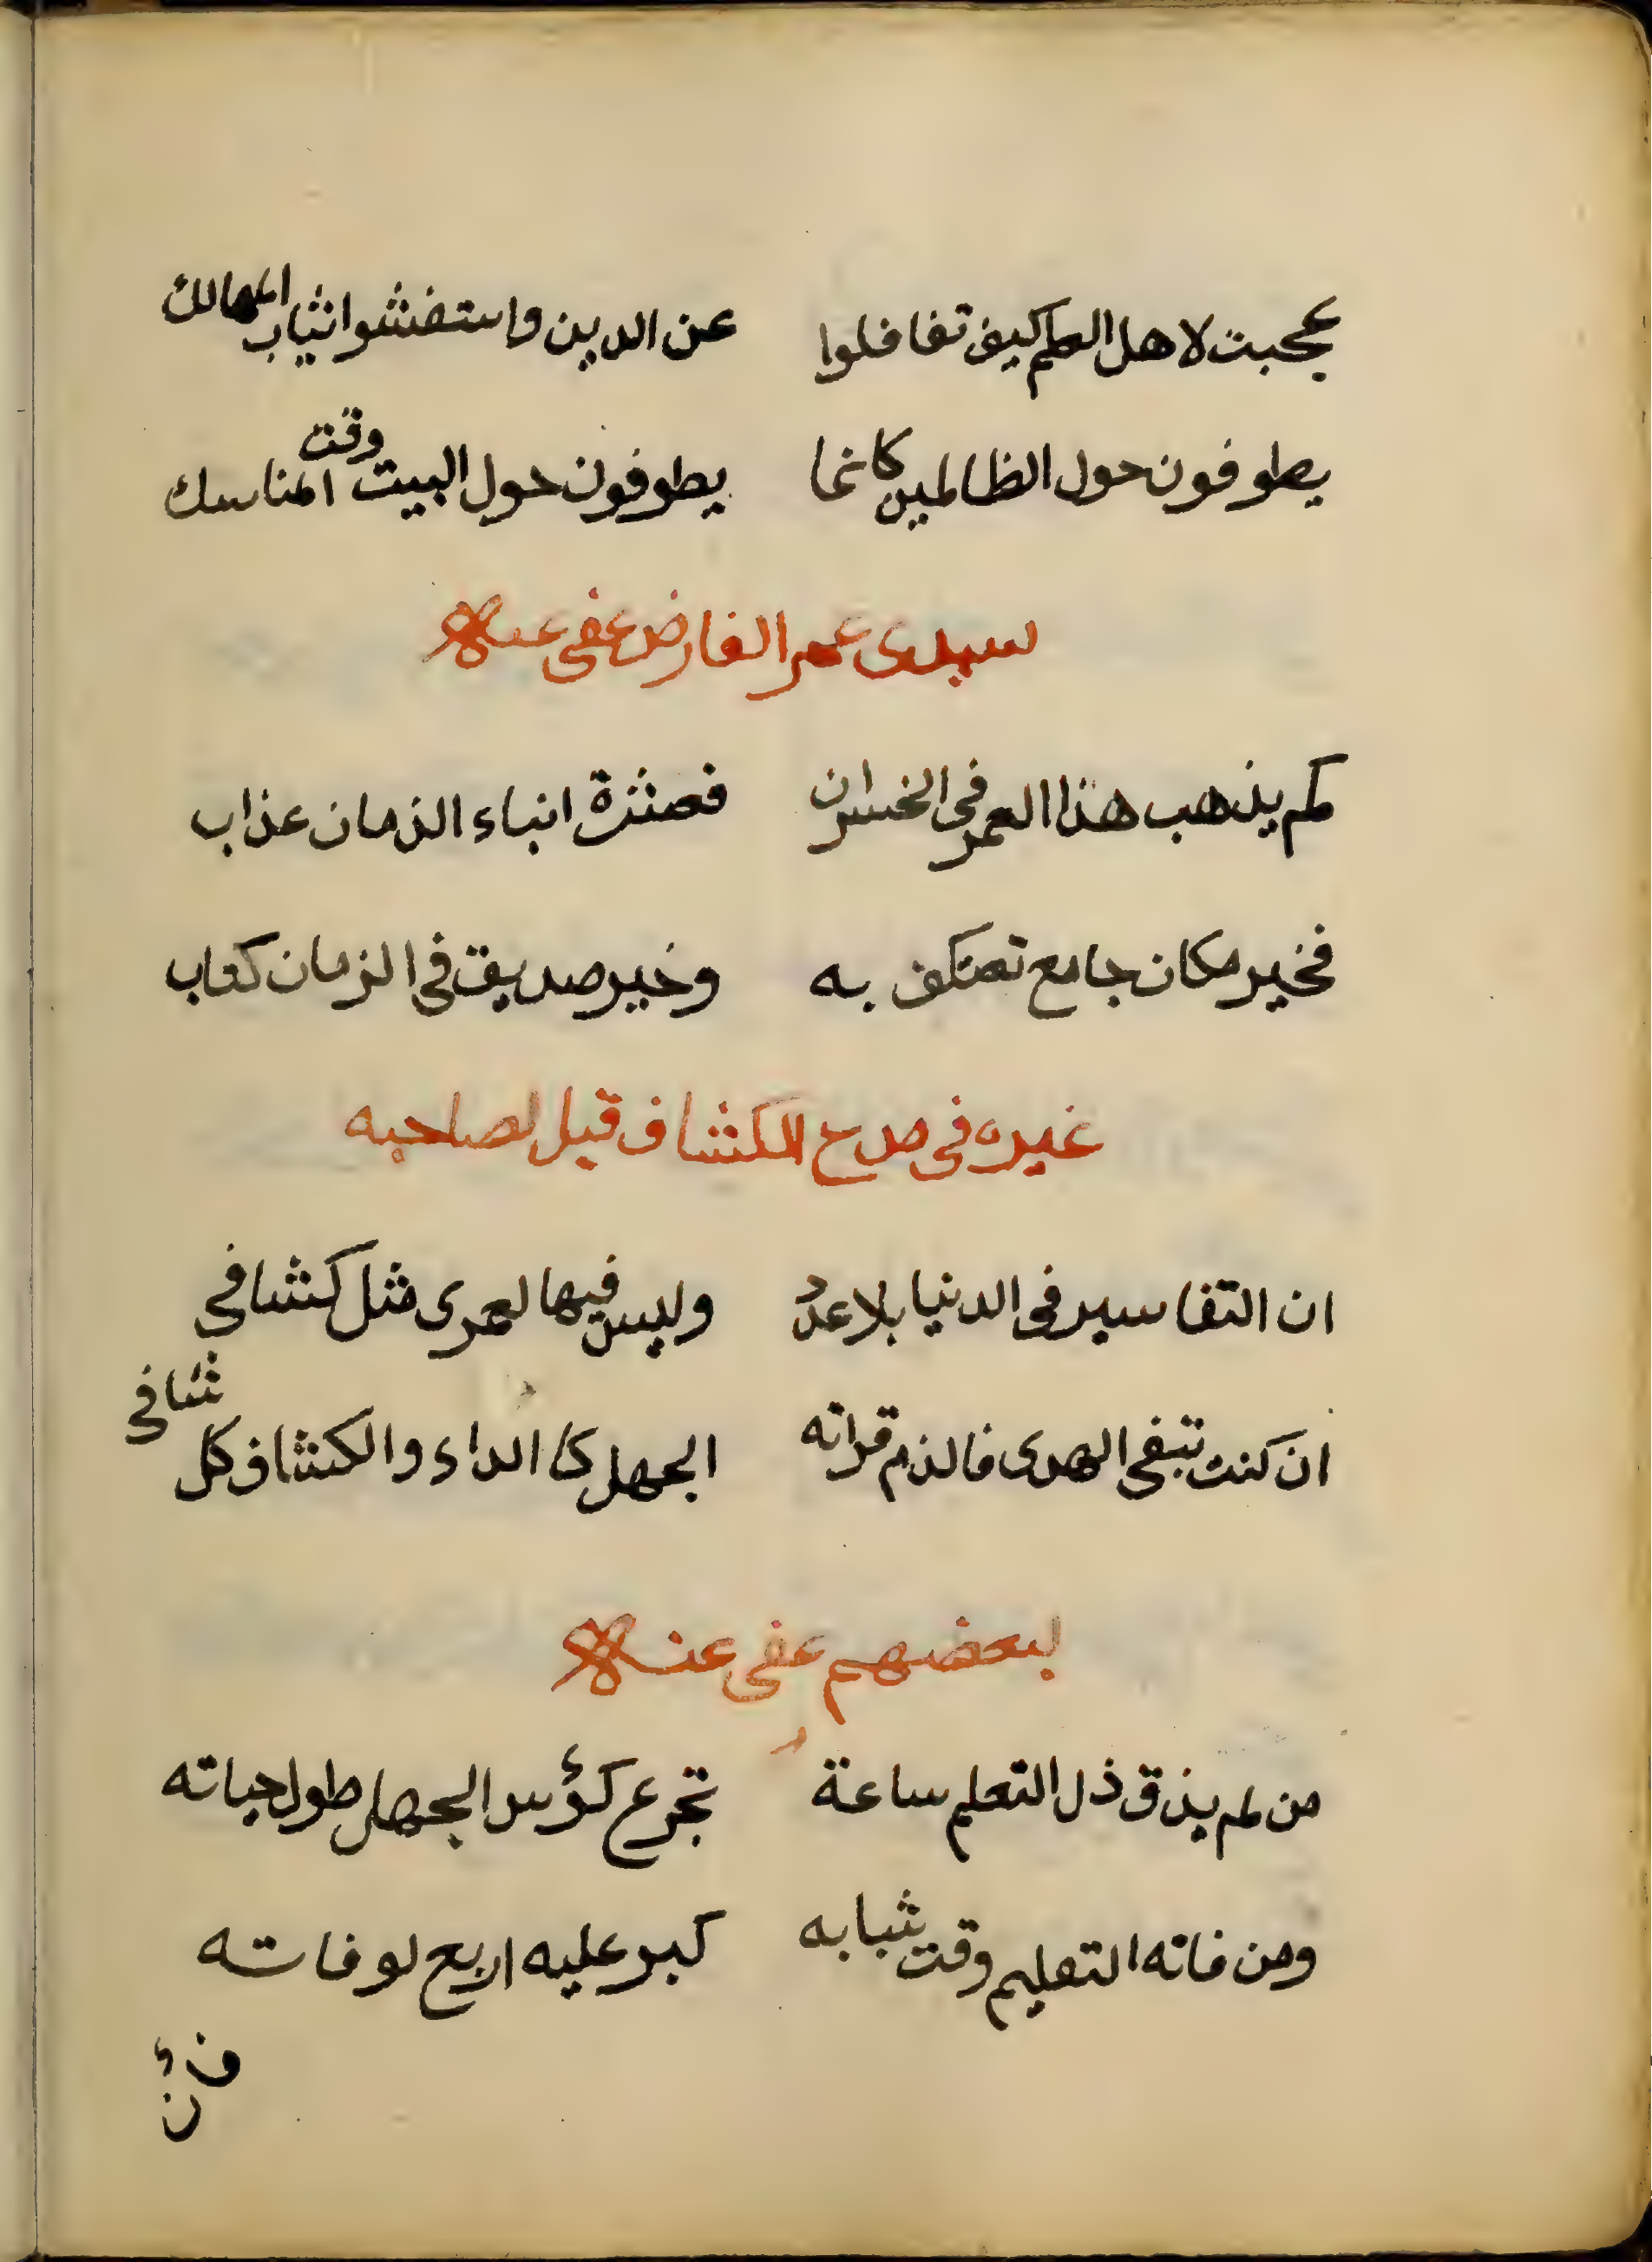 عجبت لاهل العلم كيف تغافلوا عن الدين واستغشوا ثياب المهالك
يطوفون حول الظالمين كانما يطوفون حول البيت وقت المناسك
سيدى عمر الفارض عفى عنه
كم يذهب هذا العمر فى الخسران فعشرة ابناء الزمان عذاب
فخير مكان جامع تعتكف به وخير صديق فى الزمان كتاب
غيره فى مدح الكشاف قيل لصاحبه
ان التفاسير فى الدنيا بلا عدد وليس فيها لعمرى مثل كشافى
ان كنت تبغى الهدى فالزم قراته الجهل كا الداء والكشاف كل شافى
لبعضهم عفى عنه
من لم يذق ذل التعلم ساعة تجرع كؤس الجهل طول حياته
ومن فاته التعليم وقت شبابه كبر عليه اربع لوفاته